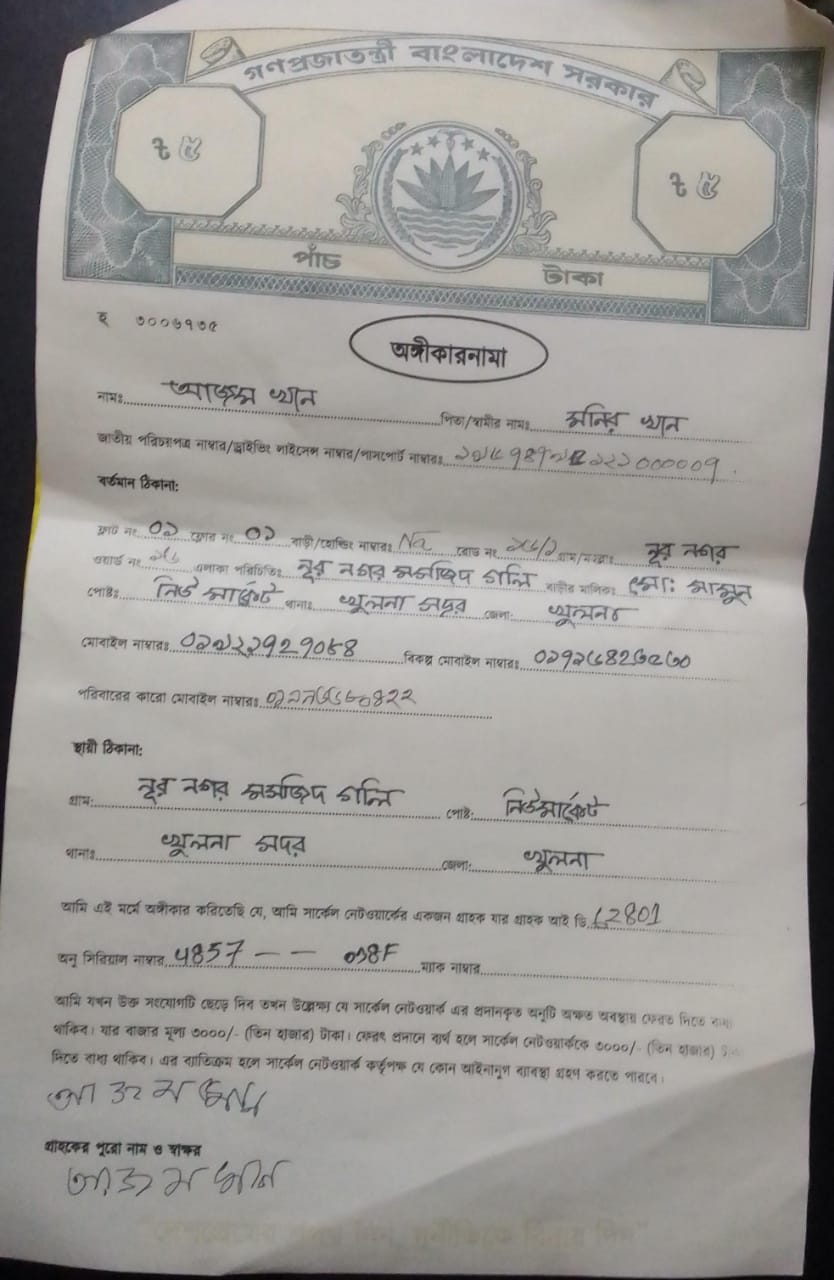 গণপ্রজাতন্ত্রী বাংলাদেশ সরকার
৳ ৫ ৳ ৫
পাঁচ টাকা
হ ৩০০৬৭৩৫
অঙ্গীকারনামা
নামঃ আজম খান পিতা/স্বামীর নামঃ মনির খান
জাতীয় পরিচয়পত্র নাম্বার/ড্রাইভিং লাইসেন্স নাম্বার/পাসপোর্ট নাম্বারঃ
বর্তমান ঠিকানা:
ফ্লাট নং ০১ ফ্লোর নং ০১ বাড়ী/হোল্ডিং নাম্বারঃ Na রোড নং গ্রাম/মহল্লাঃ নূর নগর
ওয়ার্ড নং এলাকা পরিচিতিঃ নূর নগর মসজিদ গলি বাড়ীর মালিকঃ মো: মামুন
পোষ্টঃ নিউ মার্কেট থানাঃ খুলনা সদর জেলা: খুলনা
মোবাইল নাম্বারঃ বিকল্প মোবাইল নাম্বারঃ
পরিবারের কারো মোবাইল নাম্বারঃ
স্থায়ী ঠিকানা:
গ্রাম: নূর নগর মসজিদ গলি পোষ্ট: নিউমার্কেট
থানাঃ খুলনা সদর জেলা: খুলনা
আমি এই মর্মে অঙ্গীকার করিতেছি যে, আমি সার্কেল নেটওয়ার্কের একজন গ্রাহক যার গ্রাহক আই ডি 2801
অনু সিরিয়াল নাম্বার 4857 -- ম্যাক নাম্বার
আমি যখন উক্ত সংযোগটি ছেড়ে দিব তখন উল্লেক্ষ্য যে সার্কেল নেটওয়ার্ক এর প্রদানকৃত অনুটি অক্ষত অবস্থায় ফেরত দিতে বাধ্য
থাকিব। যার বাজার মূল্য ৩০০০/- (তিন হাজার) টাকা। ফেরৎ প্রদানে ব্যর্থ হলে সার্কেল নেটওয়ার্ককে ৩০০০/- (তিন হাজার)
দিতে বাধ্য থাকিব। এর ব্যতিক্রম হলে সার্কেল নেটওয়ার্ক কর্তৃপক্ষ যে কোন আইনানুগ ব্যবস্থা গ্রহণ করতে পারবে।
আজম খান
গ্রাহকের পুরো নাম ও স্বাক্ষর
আজম খান